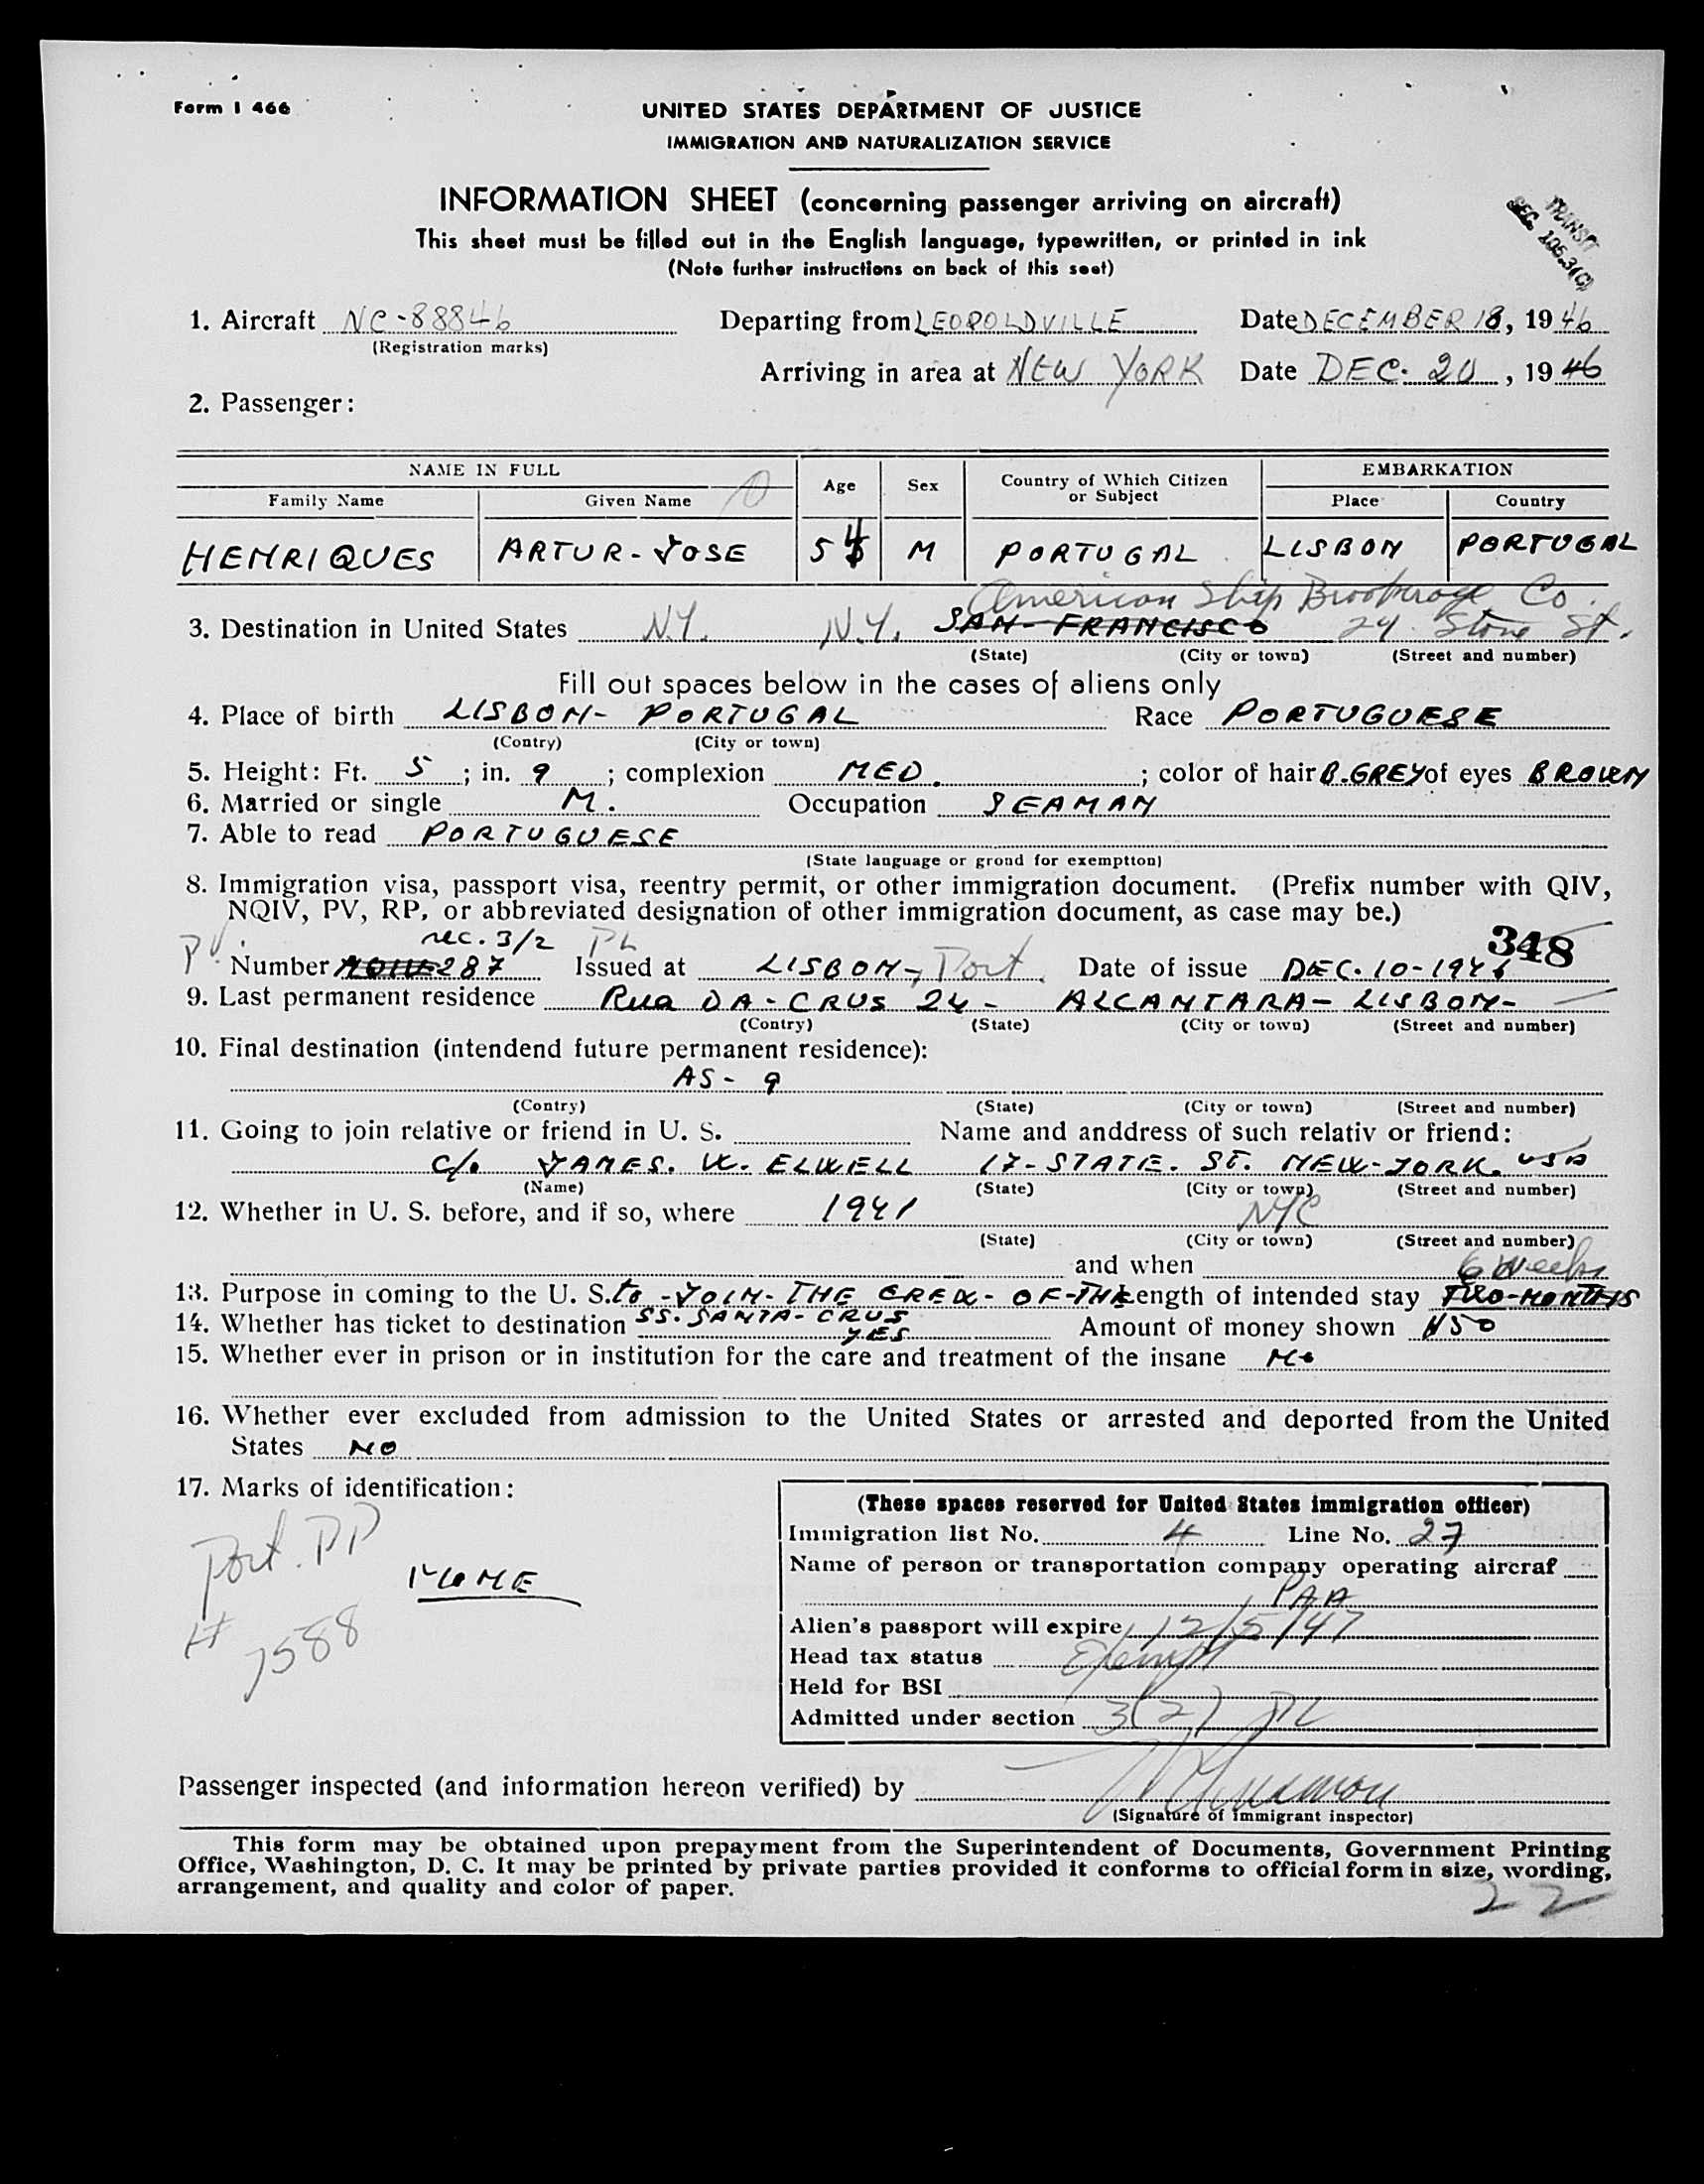 Form I 466
UNITED STATES DEPARTMENT OF JUSTICE
IMMIGRATION AND NATURALIZATION SERVICE
INFORMATION SHEET (concerning passenger arriving on aircraft)
This sheet must be filled out in the English language, typewritten, or printed in ink
(Note further instructions on back of this seet)
TRANSIT
SEC. 105.3(C)
1. Aircraft NC-88846 Departing from LEOPOLDVILLE Date DECEMBER 18, 1946
(Registration marks)
Arriving in area at NEW YORK Date DEC. 20, 1946
2. Passenger:
NAME IN FULL Age Sex Country of Which Citizen or Subject EMBARKATION
Family Name Given Name Place Country
HENRIQUES ARTUR-JOSE 54 M PORTUGAL LISBON PORTUGAL
American Ship Brokerage Co.
3. Destination in United States N.Y. N.Y. SAN-FRANCISCO 24 Stone St.
(State) (City or town) (Street and number)
Fill out spaces below in the cases of aliens only
4. Place of birth LISBON- PORTUGAL Race PORTUGUESE
(Contry) (City or town)
5. Height: Ft. 5; in. 9; complexion MED.; color of hair B.GREY of eyes BROWN
6. Married or single M. Occupation SEAMAN
7. Able to read PORTUGUESE
(State language or grond for exemptton)
8. Immigration visa, passport visa, reentry permit, or other immigration document. (Prefix number with QIV,
NQIV, PV, RP, or abbreviated designation of other immigration document, as case may be.)
sec. 3/2 PL 348
PV. Number 287 Issued at LISBON-, Port. Date of issue DEC. 10-1946
9. Last permanent residence Rua DA-CRUS 24- ALCANTARA- LISBON-
(Contry) (State) (City or town) (Street and number)
10. Final destination (intendend future permanent residence):
AS- 9
(Contry) (State) (City or town) (Street and number)
11. Going to join relative or friend in U. S. Name and anddress of such relativ or friend:
c/o JAMES. W. ELWELL 17-STATE. ST. NEW-YORK. USA
(Name) (State) (City or town) (Street and number)
12. Whether in U. S. before, and if so, where 1941 NYC
(State) (City or town) (Street and number)
and when 6 weeks
13. Purpose in coming to the U. S. to-JOIN-THE CREW-OF-THE Length of intended stay TWO-MONTHS
SS. SANTA-CRUS
14. Whether has ticket to destination YES Amount of money shown $50
15. Whether ever in prison or in institution for the care and treatment of the insane No
16. Whether ever excluded from admission to the United States or arrested and deported from the United
States NO
17. Marks of identification:
Port. PP
NONE
# 7588
(These spaces reserved for United States immigration officer)
Immigration list No. 4 Line No. 27
Name of person or transportation company operating aircraf
PAA
Alien's passport will expire 12/5/47
Head tax status Exempt
Held for BSI
Admitted under section 3(2) PL
Passenger inspected (and information hereon verified) by
(Signature of immigrant inspector)
This form may be obtained upon prepayment from the Superintendent of Documents, Government Printing
Office, Washington, D. C. It may be printed by private parties provided it conforms to official form in size, wording,
arrangement, and quality and color of paper.
22